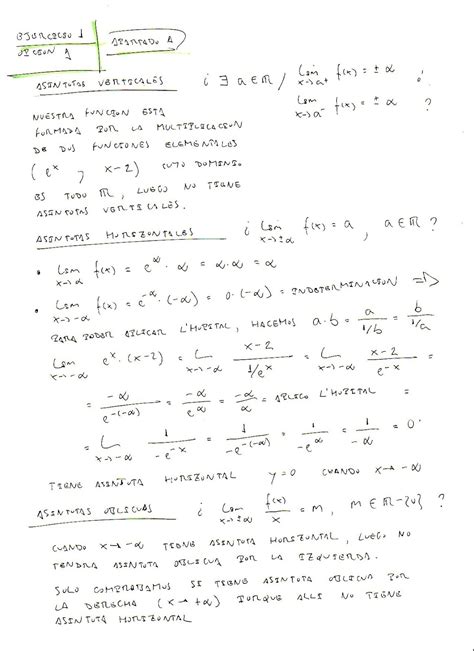 EJERCICIO 1
OPCION 1
APARTADO A
ASINTOTAS VERTICALES ¿ ∃ a ∈ ℝ / Lim x→a⁺ f(x) = ± ∞ ó
Lim x→a⁻ f(x) = ± ∞ ?
NUESTRA FUNCION ESTA
FORMADA POR LA MULTIPLICACION
DE DOS FUNCIONES ELEMENTALES
( eˣ , x-2 ) CUYO DOMINIO
ES TODO ℝ, LUEGO NO TIENE
ASINTOTAS VERTICALES.
ASINTOTAS HORIZONTALES ¿ Lim x→±∞ f(x) = a , a ∈ ℝ ?
• Lim x→∞ f(x) = e^∞ · ∞ = ∞·∞ = ∞
• Lim x→-∞ f(x) = e^-∞ · (-∞) = 0·(-∞) = INDETERMINACION ⇒
PARA PODER APLICAR L'HOPITAL, HACEMOS a·b = a/(1/b) = b/(1/a)
Lim x→-∞ eˣ·(x-2) = L x→-∞ (x-2)/(1/eˣ) = Lim x→-∞ (x-2)/e^-x
= -∞/e^-(-∞) = -∞/e^∞ = -∞/∞ = APLICO L'HOPITAL =
= L x→-∞ 1/-e^-x = 1/-e^-(-∞) = 1/-e^∞ = 1/-∞ = 0
TIENE ASINTOTA HORIZONTAL y=0 CUANDO x→-∞
ASINTOTAS OBLICUAS ¿ Lim x→±∞ f(x)/x = m, m ∈ ℝ-{0} ?
CUANDO x→-∞ TIENE ASINTOTA HORIZONTAL, LUEGO NO
TENDRA ASINTOTA OBLICUA POR LA IZQUIERDA.
SOLO COMPROBAMOS SI TIENE ASINTOTA OBLICUA POR
LA DERECHA (x→+∞) PORQUE ALLI NO TIENE
ASINTOTA HORIZONTAL